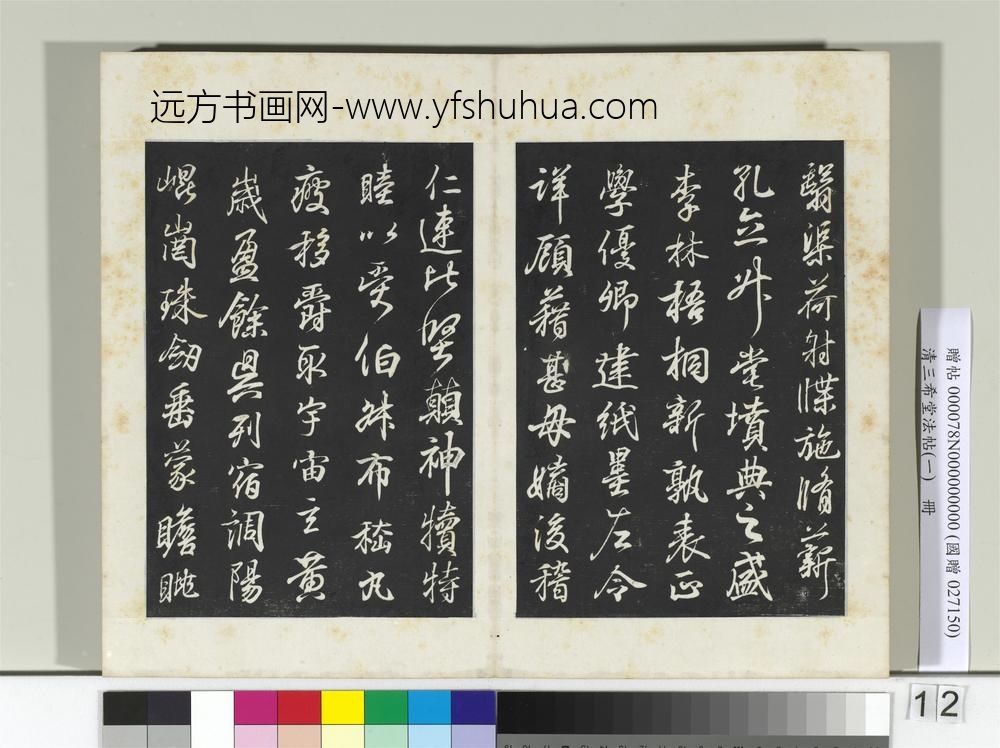 远方书画网-www.yfshuhua.com
翳渠荷射牒施脩薪
孔立升堂墳典之盛
李林梧桐新孰表正
學優卿建紙墨左令
詳顧藉甚毋嫡後稽
仁連比堅顛神犢特
睦以受伯叔布嵇丸
疲移爵取宇宙立黃
歲盈餘具列宿調陽
崐崗珠劒垂蒙瞻眺
贈帖 000078N000000000 (國贈 027150)
清三希堂法帖(一) 冊
12